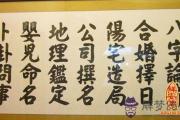 八字論
合婚擇日
陽宅造局
公司撰名
地理鑑定
嬰兒命名
卜卦問事